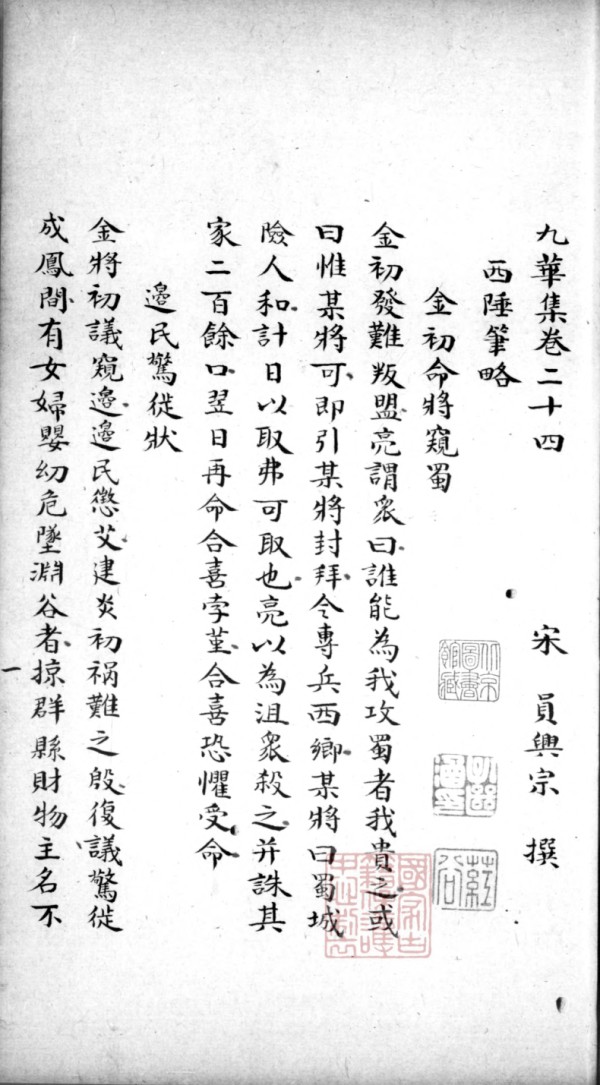 九華集卷二十四　宋　員興宗　撰
西陲筆略
金初命將窺蜀
金初發難叛盟亮謂衆曰誰能為我攻蜀者我貴之或
曰惟某將可即引某將封拜令專兵西鄉某將曰蜀城
險人和計日以取弗可取也亮以為沮衆殺之并誅其
家二百餘口翌日再命合喜孛堇合喜恐懼受命
邊民驚徙狀
金將初議窺邊邊民懲艾建炎初禍難之殷復議驚徙
成鳳間有女婦嬰幼危墜淵谷者掠群縣財物主名不
一
北京圖書館藏